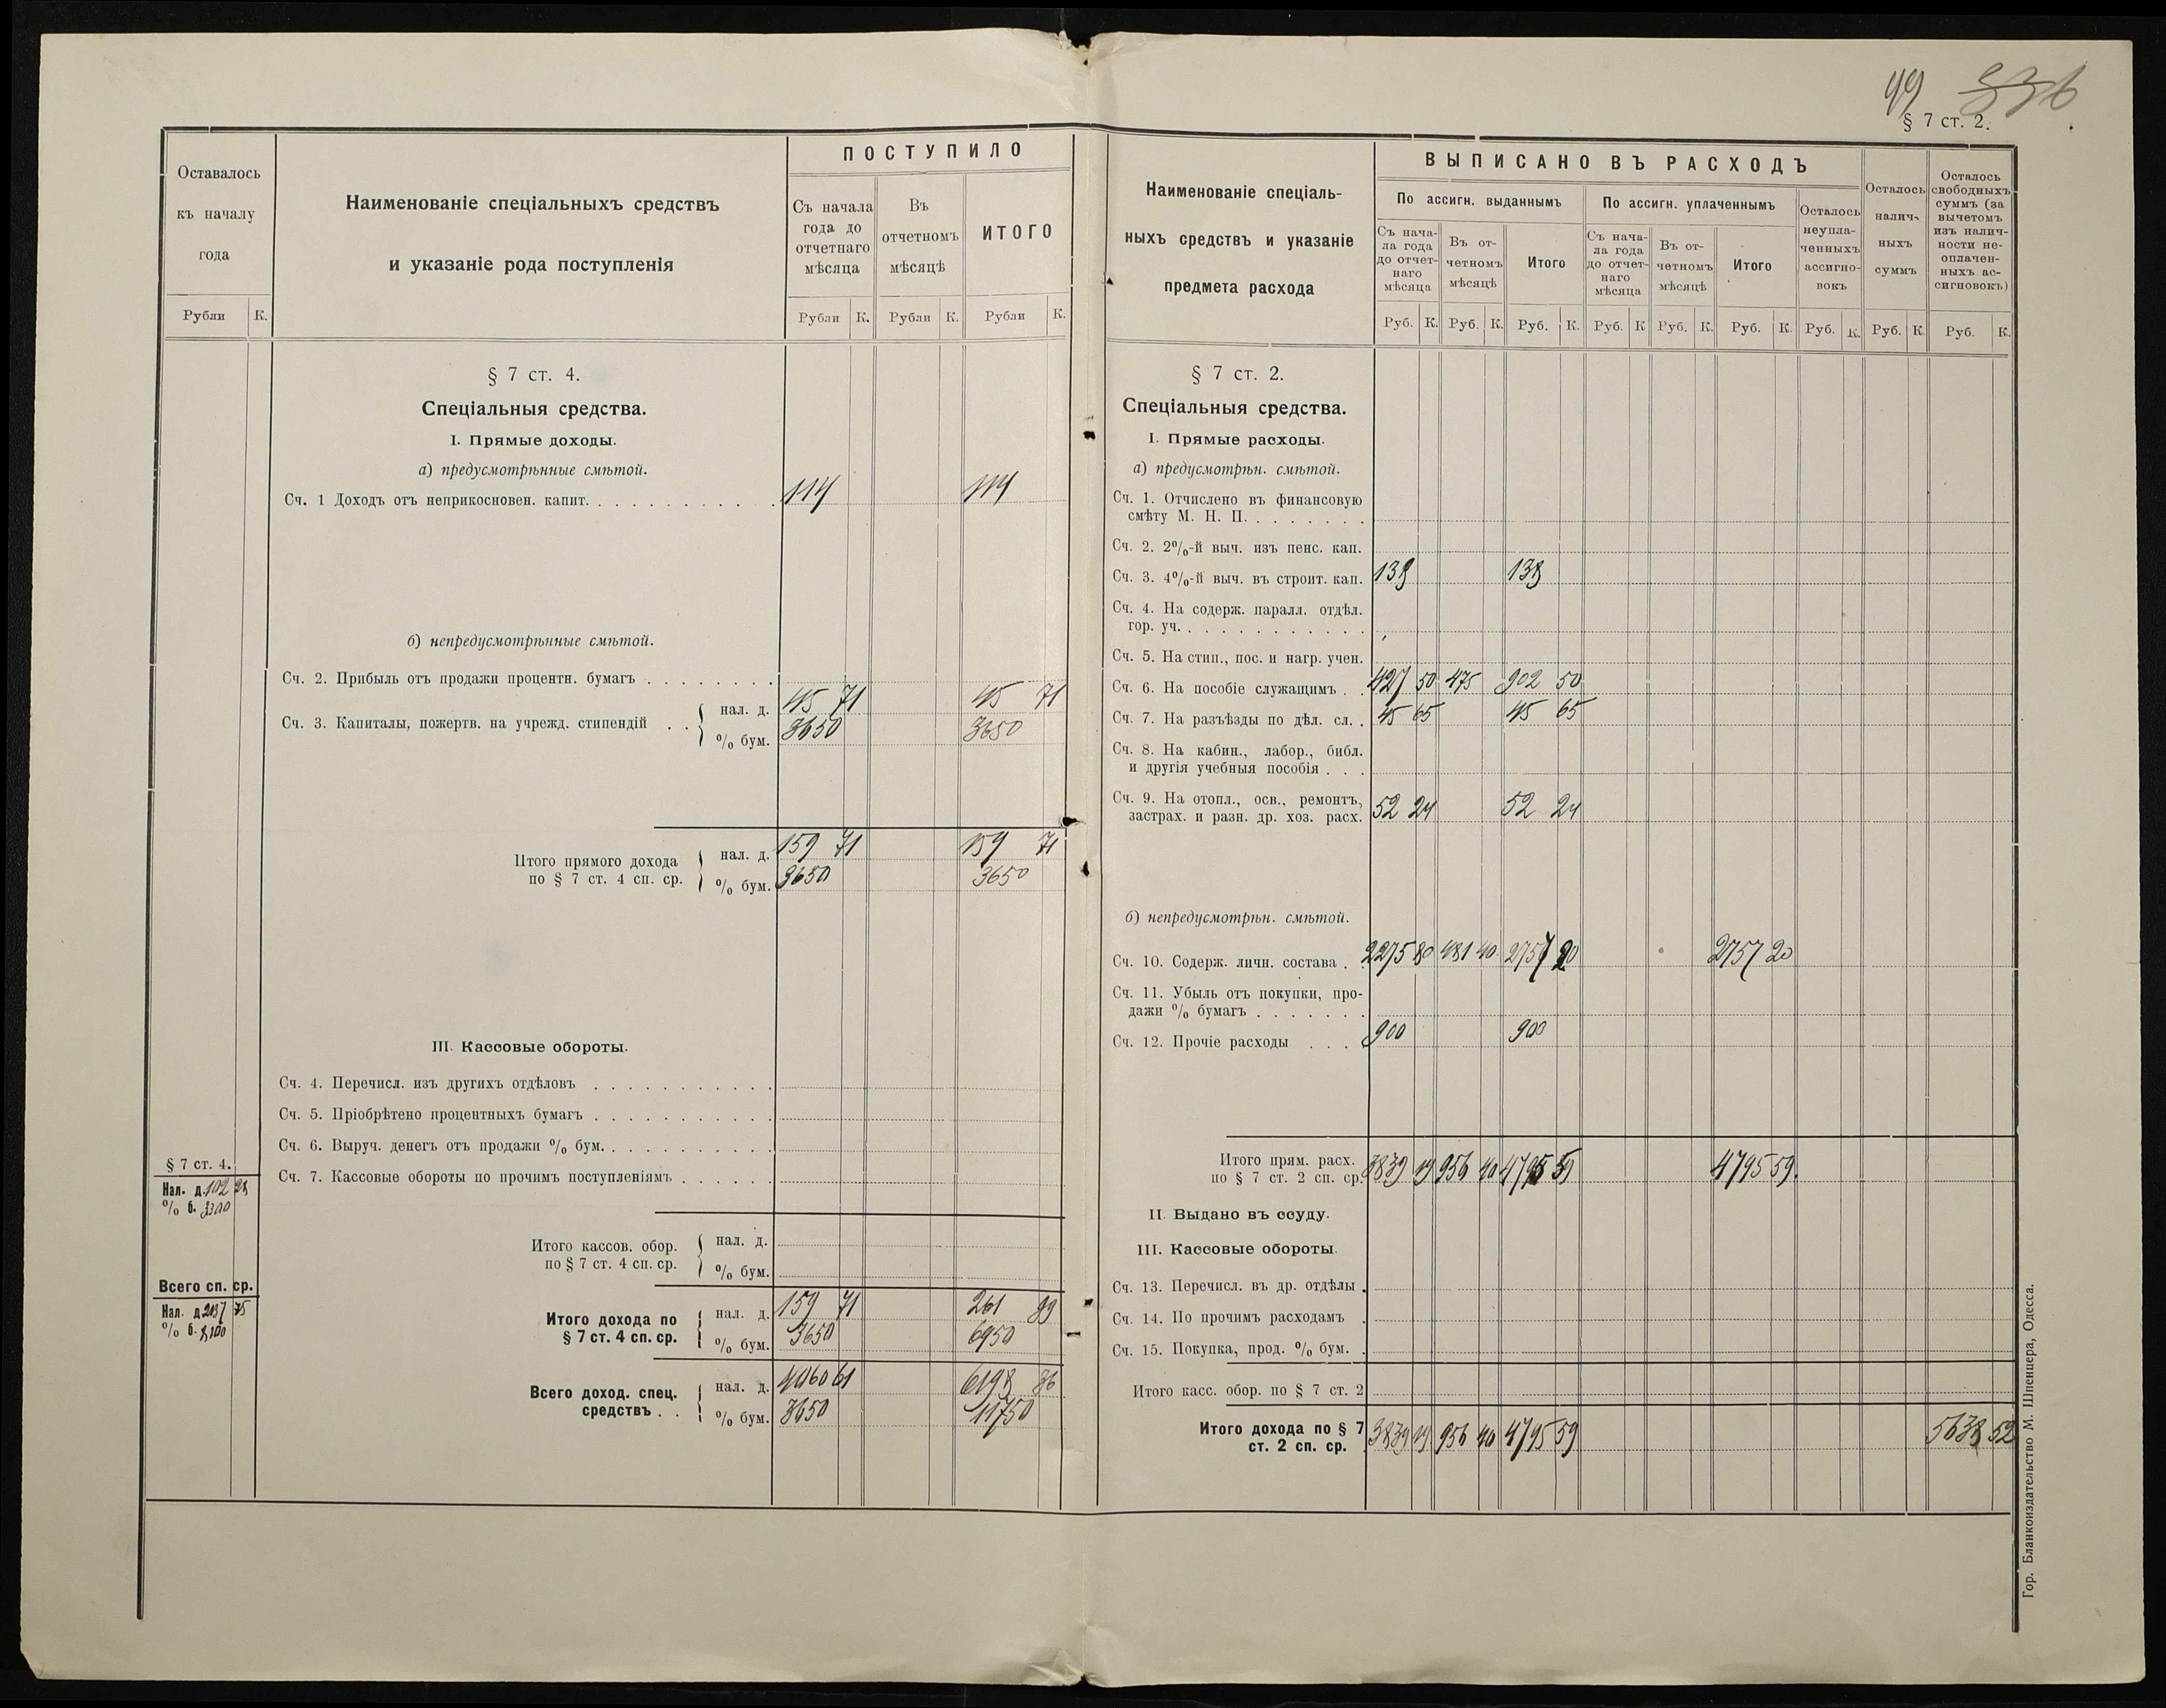 99 336
§ 7 ст. 2.
Оставалось
къ началу
года
Рубли К.
Наименованіе спеціальныхъ средствъ
и указаніе рода поступленія
ПОСТУПИЛО
Съ начала
года до
отчетнаго
мѣсяца
Въ
отчетномъ
мѣсяцѣ
ИТОГО
Рубли К. Рубли К. Рубли К.
§ 7 ст. 4.
Спеціальныя средства.
I. Прямые доходы.
а) предусмотрѣнные смѣтой.
Сч. 1 Доходъ отъ неприкосновен. капит. . . . . . . . . . . . 114 114
б) непредусмотрѣнные смѣтой.
Сч. 2. Прибыль отъ продажи процентн. бумагъ . . . . . . . .
Сч. 3. Капиталы, пожертв. на учрежд. стипендій . . нал. д. 45 71 45 71
% бум. 3650 3650
Итого прямого дохода
по § 7 ст. 4 сп. ср.
нал. д. 159 71 159 71
% бум. 3650 3650
III. Кассовые обороты.
Сч. 4. Перечисл. изъ другихъ отдѣловъ . . . . . . . . . . .
Сч. 5. Пріобрѣтено процентныхъ бумагъ . . . . . . . . . . .
Сч. 6. Выруч. денегъ отъ продажи % бум. . . . . . . . . . .
Сч. 7. Кассовые обороты по прочимъ поступленіямъ . . . . . .
§ 7 ст. 4.
Нал. д. 102 28
% б. 3300
Итого кассов. обор.
по § 7 ст. 4 сп. ср.
нал. д.
% бум.
Всего сп. ср.
Нал. д. 2137 75
% б. 8100
Итого дохода по
§ 7 ст. 4 сп. ср.
нал. д. 159 71 261 99
% бум. 3650 6950
Всего доход. спец.
средствъ . .
нал. д. 4060 61 6198 36
% бум. 3650 11750
Наименованіе спеціаль-
ныхъ средствъ и указаніе
предмета расхода
ВЫПИСАНО ВЪ РАСХОДЪ
По ассигн. выданнымъ
По ассигн. уплаченнымъ
Съ нача-
ла года
до отчет-
наго
мѣсяца
Въ от-
четномъ
мѣсяцѣ
Итого
Съ нача-
ла года
до отчет-
наго
мѣсяца
Въ от-
четномъ
мѣсяцѣ
Итого
Осталось
неупла-
ченныхъ
ассигно-
вокъ
Осталось
налич-
ныхъ
суммъ
Осталось
свободныхъ
суммъ (за
вычетомъ
изъ налич-
ности не-
оплачен-
ныхъ ас-
сигновокъ)
Руб. К. Руб. К. Руб. К. Руб. К Руб. К. Руб. К. Руб. К. Руб. К. Руб. К.
§ 7 ст. 2.
Спеціальныя средства.
I. Прямые расходы.
а) предусмотрѣн. смѣтой.
Сч. 1. Отчислено въ финансовую
смѣту М. Н. П. . . . . . . .
Сч. 2. 2%-й выч. изъ пенс. кап.
Сч. 3. 4%-й выч. въ строит. кап. 138 138
Сч. 4. На содерж. паралл. отдѣл.
гор. уч. . . . . . . . . . . .
Сч. 5. На стип., пос. и нагр. учен.
Сч. 6. На пособіе служащимъ . . 427 50 475 902 50
Сч. 7. На разъѣзды по дѣл. сл. . 45 65 45 65
Сч. 8. На кабин., лабор., библ.
и другія учебныя пособія . . .
Сч. 9. На отопл., осв., ремонтъ,
застрах. и разн. др. хоз. расх. 52 24 52 24
б) непредусмотрѣн. смѣтой.
Сч. 10. Содерж. личн. состава . 2275 80 481 40 2757 20 2757 20
Сч. 11. Убыль отъ покупки, про-
дажи % бумагъ . . . . . . .
Сч. 12. Прочіе расходы . . . 900 900
Итого прям. расх.
по § 7 ст. 2 сп. ср. 3839 19 956 40 4795 59 4795 59.
II. Выдано въ ссуду.
III. Кассовые обороты.
Сч. 13. Перечисл. въ др. отдѣлы .
Сч. 14. По прочимъ расходамъ .
Сч. 15. Покупка, прод. % бум. .
Итого касс. обор. по § 7 ст. 2
Итого дохода по § 7
ст. 2 сп. ср. 3839 19 956 40 4795 59 5638 52
Гор. Бланкоиздательство М. Шпенцера, Одесса.